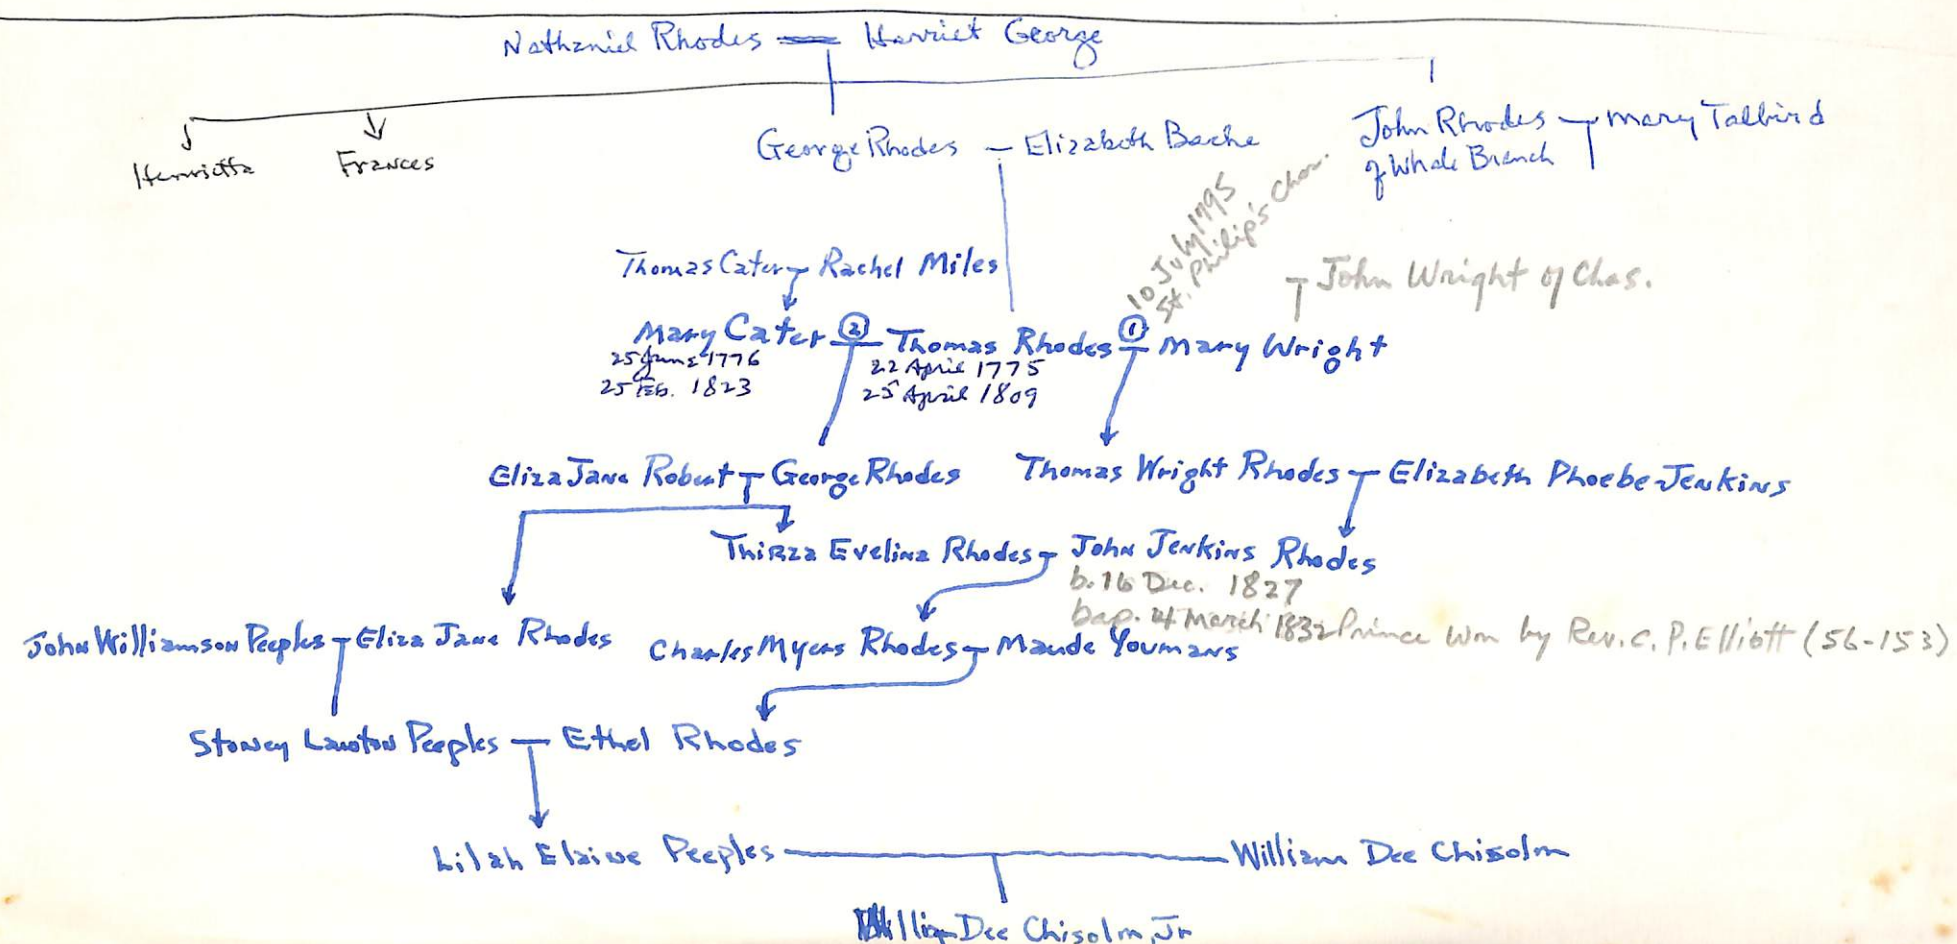 Nathaniel Rhodes Harriet George
Henrietta
Frances
George Rhodes – Elizabeth Bache
John Rhodes Mary Talbird
of Whale Branch
10 July 1795
St. Philip's Chas.
Thomas Cater Rachel Miles
John Wright of Chas.
Mary Cater ② Thomas Rhodes ① Mary Wright
25 June 1776
25 Feb. 1823
22 April 1775
25 April 1809
Eliza Jane Robert George Rhodes
Thomas Wright Rhodes Elizabeth Phoebe Jenkins
Thirza Evelina Rhodes John Jenkins Rhodes
b. 16 Dec. 1827
bap. 4 March 1832 Prince Wm by Rev. C. P. Elliott (56-153)
John Williamson Peeples Eliza Jane Rhodes
Charles Myers Rhodes Maude Youmans
Stoney Lawton Peeples Ethel Rhodes
Lilah Elaine Peeples William Dee Chisolm
William Dee Chisolm, Jr